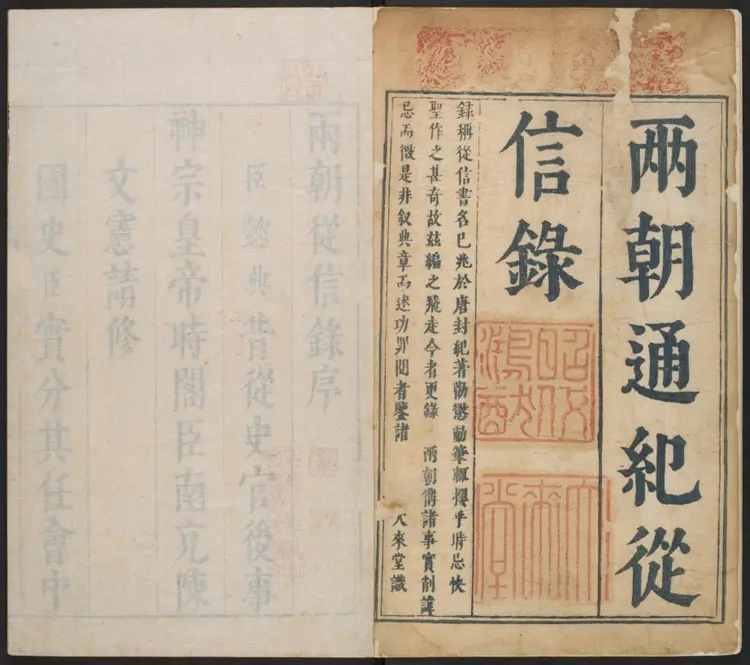 兩朝通紀從
信錄
昭代
鴻猷
大來堂
錄稱從信書名已兆於唐封紀著勸懲動筆輒攖乎時忌快
聖作之甚奇故茲編之飛走今者更錄 兩朝傳諸事實削諱
忌而微是非叙典章而述功罪閱者鑒諸 大來堂識
兩朝從信錄序
臣懿典昔從史官後事
神宗皇帝時閣臣南充陳
文憲請修
國史臣實分其任會中